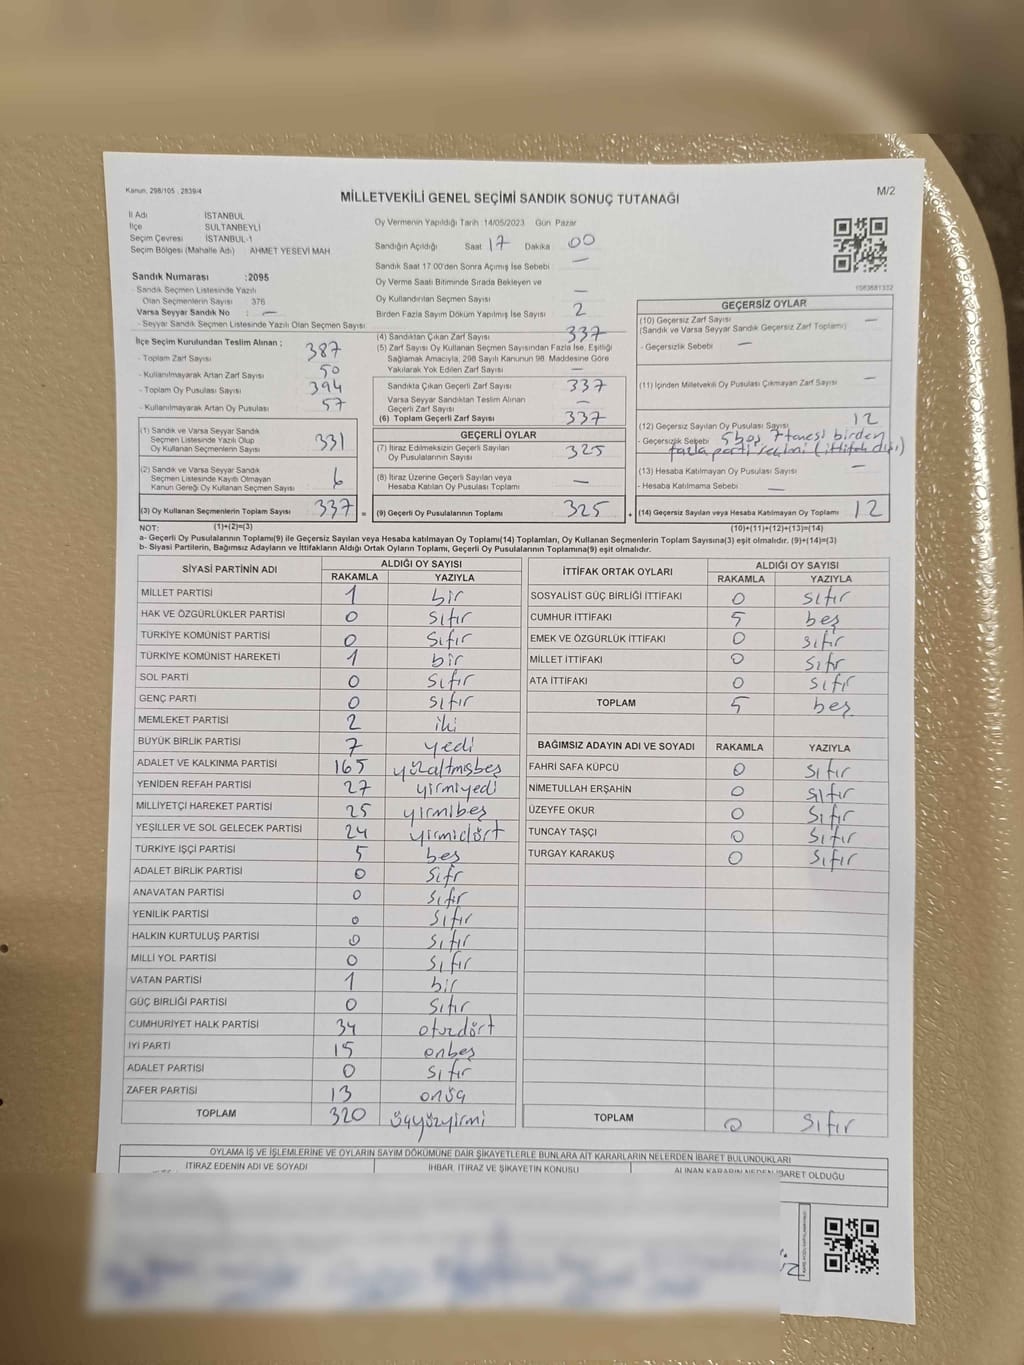 Kanun, 298/105 , 2839/4
M/2
MİLLETVEKİLİ GENEL SEÇİMİ SANDIK SONUÇ TUTANAĞI
İl Adı İSTANBUL
İlçe SULTANBEYLİ
Seçim Çevresi İSTANBUL-1
Seçim Bölgesi (Mahalle Adı) : AHMET YESEVİ MAH
Sandık Numarası :2095
- Sandık Seçmen Listesinde Yazılı
Olan Seçmenlerin Sayısı 376
Varsa Seyyar Sandık No : —
- Seyyar Sandık Seçmen Listesinde Yazılı Olan Seçmen Sayısı
İlçe Seçim Kurulundan Teslim Alınan ;
- Toplam Zarf Sayısı 387
- Kullanılmayarak Artan Zarf Sayısı 50
- Toplam Oy Pusulası Sayısı 394
- Kullanılmayarak Artan Oy Pusulası 57
(1) Sandık ve Varsa Seyyar Sandık
Seçmen Listesinde Yazılı Olup
Oy Kullanan Seçmenlerin Sayısı 331
(2) Sandık ve Varsa Seyyar Sandık
Seçmen Listesinde Kayıtlı Olmayan
Kanun Gereği Oy Kullanan Seçmen Sayısı 6
(3) Oy Kullanan Seçmenlerin Toplam Sayısı 337 =
Oy Vermenin Yapıldığı Tarih 14/05/2023 Gün Pazar
Sandığın Açıldığı Saat 17 Dakika 00
Sandık Saat 17:00'den Sonra Açılmış İse Sebebi —
Oy Verme Saati Bitiminde Sırada Bekleyen ve
Oy Kullandırılan Seçmen Sayısı —
Birden Fazla Sayım Döküm Yapılmış İse Sayısı 2
(4) Sandıktan Çıkan Zarf Sayısı 337
(5) Zarf Sayısı Oy Kullanan Seçmen Sayısından Fazla İse, Eşitliği
Sağlamak Amacıyla, 298 Sayılı Kanunun 98. Maddesine Göre
Yakılarak Yok Edilen Zarf Sayısı —
Sandıkta Çıkan Geçerli Zarf Sayısı 337
Varsa Seyyar Sandıktan Teslim Alınan
Geçerli Zarf Sayısı —
(6) Toplam Geçerli Zarf Sayısı 337
GEÇERLİ OYLAR
(7) İtiraz Edilmeksizin Geçerli Sayılan
Oy Pusulalarının Sayısı 325
(8) İtiraz Üzerine Geçerli Sayılan veya
Hesaba Katılan Oy Pusulası Toplamı —
(9) Geçerli Oy Pusulalarının Toplamı 325 +
1083681332
GEÇERSİZ OYLAR
(10) Geçersiz Zarf Sayısı —
(Sandık ve Varsa Seyyar Sandık Geçersiz Zarf Toplamı)
- Geçersizlik Sebebi —
(11) İçinden Milletvekili Oy Pusulası Çıkmayan Zarf Sayısı —
(12) Geçersiz Sayılan Oy Pusulası Sayısı 12
- Geçersizlik Sebebi 5 boş 7 tanesi birden
fazla parti seçimi (ittifak dışı)
(13) Hesaba Katılmayan Oy Pusulası Sayısı —
- Hesaba Katılmama Sebebi —
(14) Geçersiz Sayılan veya Hesaba Katılmayan Oy Toplamı 12
NOT: (1)+(2)=(3) (10)+(11)+(12)+(13)=(14)
a- Geçerli Oy Pusulalarının Toplamı(9) ile Geçersiz Sayılan veya Hesaba katılmayan Oy Toplamı(14) Toplamları, Oy Kullanan Seçmenlerin Toplam Sayısına(3) eşit olmalıdır. (9)+(14)=(3)
b- Siyasi Partilerin, Bağımsız Adayların ve İttifakların Aldığı Ortak Oyların Toplamı, Geçerli Oy Pusulalarının Toplamına(9) eşit olmalıdır.
SİYASİ PARTİNİN ADI ALDIĞI OY SAYISI
RAKAMLA YAZIYLA
MİLLET PARTİSİ 1 bir
HAK VE ÖZGÜRLÜKLER PARTİSİ 0 sıfır
TÜRKİYE KOMÜNİST PARTİSİ 0 sıfır
TÜRKİYE KOMÜNİST HAREKETİ 1 bir
SOL PARTİ 0 sıfır
GENÇ PARTİ 0 sıfır
MEMLEKET PARTİSİ 2 iki
BÜYÜK BİRLİK PARTİSİ 7 yedi
ADALET VE KALKINMA PARTİSİ 165 yüzaltmışbeş
YENİDEN REFAH PARTİSİ 27 yirmiyedi
MİLLİYETÇİ HAREKET PARTİSİ 25 yirmibeş
YEŞİLLER VE SOL GELECEK PARTİSİ 24 yirmidört
TÜRKİYE İŞÇİ PARTİSİ 5 beş
ADALET BİRLİK PARTİSİ 0 sıfır
ANAVATAN PARTİSİ 0 sıfır
YENİLİK PARTİSİ 0 sıfır
HALKIN KURTULUŞ PARTİSİ 0 sıfır
MİLLİ YOL PARTİSİ 0 sıfır
VATAN PARTİSİ 1 bir
GÜÇ BİRLİĞİ PARTİSİ 0 sıfır
CUMHURİYET HALK PARTİSİ 34 otuzdört
İYİ PARTİ 15 onbeş
ADALET PARTİSİ 0 sıfır
ZAFER PARTİSİ 13 onüç
TOPLAM 320 üçyüzyirmi
İTTİFAK ORTAK OYLARI ALDIĞI OY SAYISI
RAKAMLA YAZIYLA
SOSYALİST GÜÇ BİRLİĞİ İTTİFAKI 0 sıfır
CUMHUR İTTİFAKI 5 beş
EMEK VE ÖZGÜRLÜK İTTİFAKI 0 sıfır
MİLLET İTTİFAKI 0 sıfır
ATA İTTİFAKI 0 sıfır
TOPLAM 5 beş
BAĞIMSIZ ADAYIN ADI VE SOYADI RAKAMLA YAZIYLA
FAHRİ SAFA KÜPCÜ 0 sıfır
NİMETULLAH ERŞAHİN 0 sıfır
ÜZEYFE OKUR 0 sıfır
TUNCAY TAŞÇI 0 sıfır
TURGAY KARAKUŞ 0 sıfır
TOPLAM 0 sıfır
OYLAMA İŞ VE İŞLEMLERİNE VE OYLARIN SAYIM DÖKÜMÜNE DAİR ŞİKAYETLERLE BUNLARA AİT KARARLARIN NELERDEN İBARET BULUNDUKLARI
İTİRAZ EDENİN ADI VE SOYADI İHBAR, İTİRAZ VE ŞİKAYETİN KONUSU ALINAN KARARIN NEDEN İBARET OLDUĞU